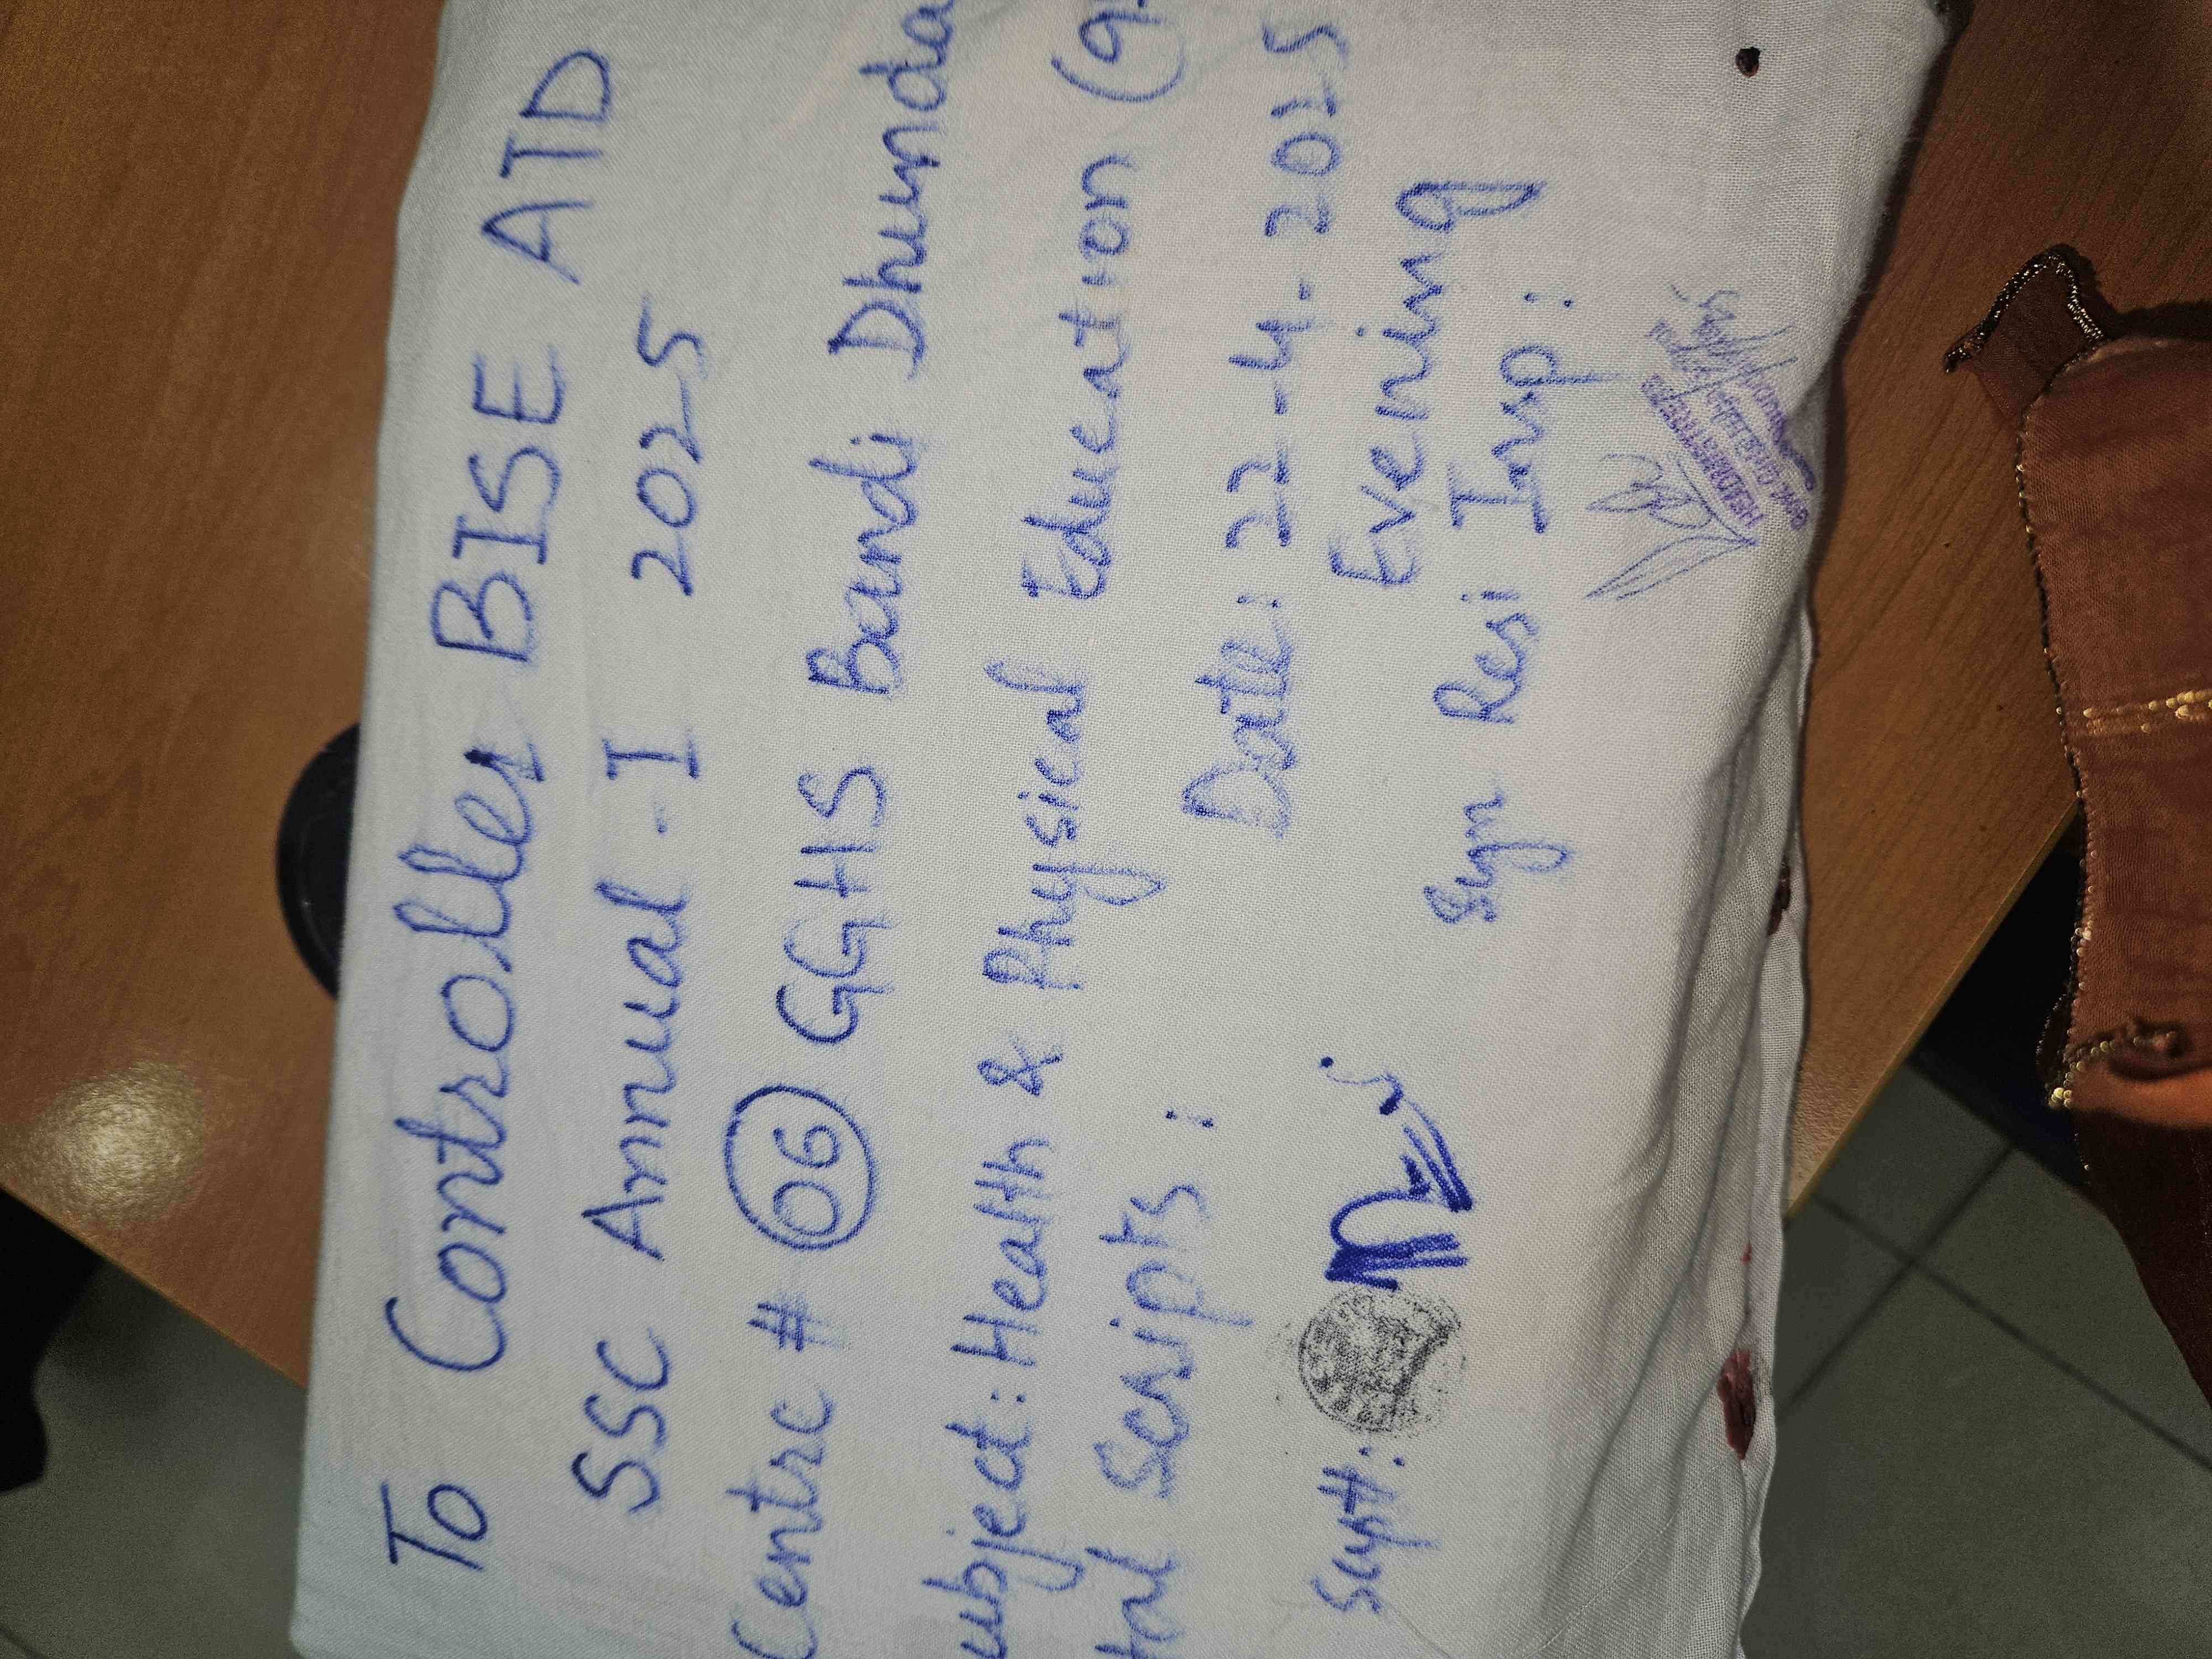 To Controller BISE ATD
SSC Annual - I 2025
Centre # 06 GGHS Bandi Dhunda
ubject: Health & Physical Education (9
tal Scripts :
Date: 22-4-2025
Evening
Supt:
Sign Resi Insp:
HEADMISTRESS
Govt. Girls High